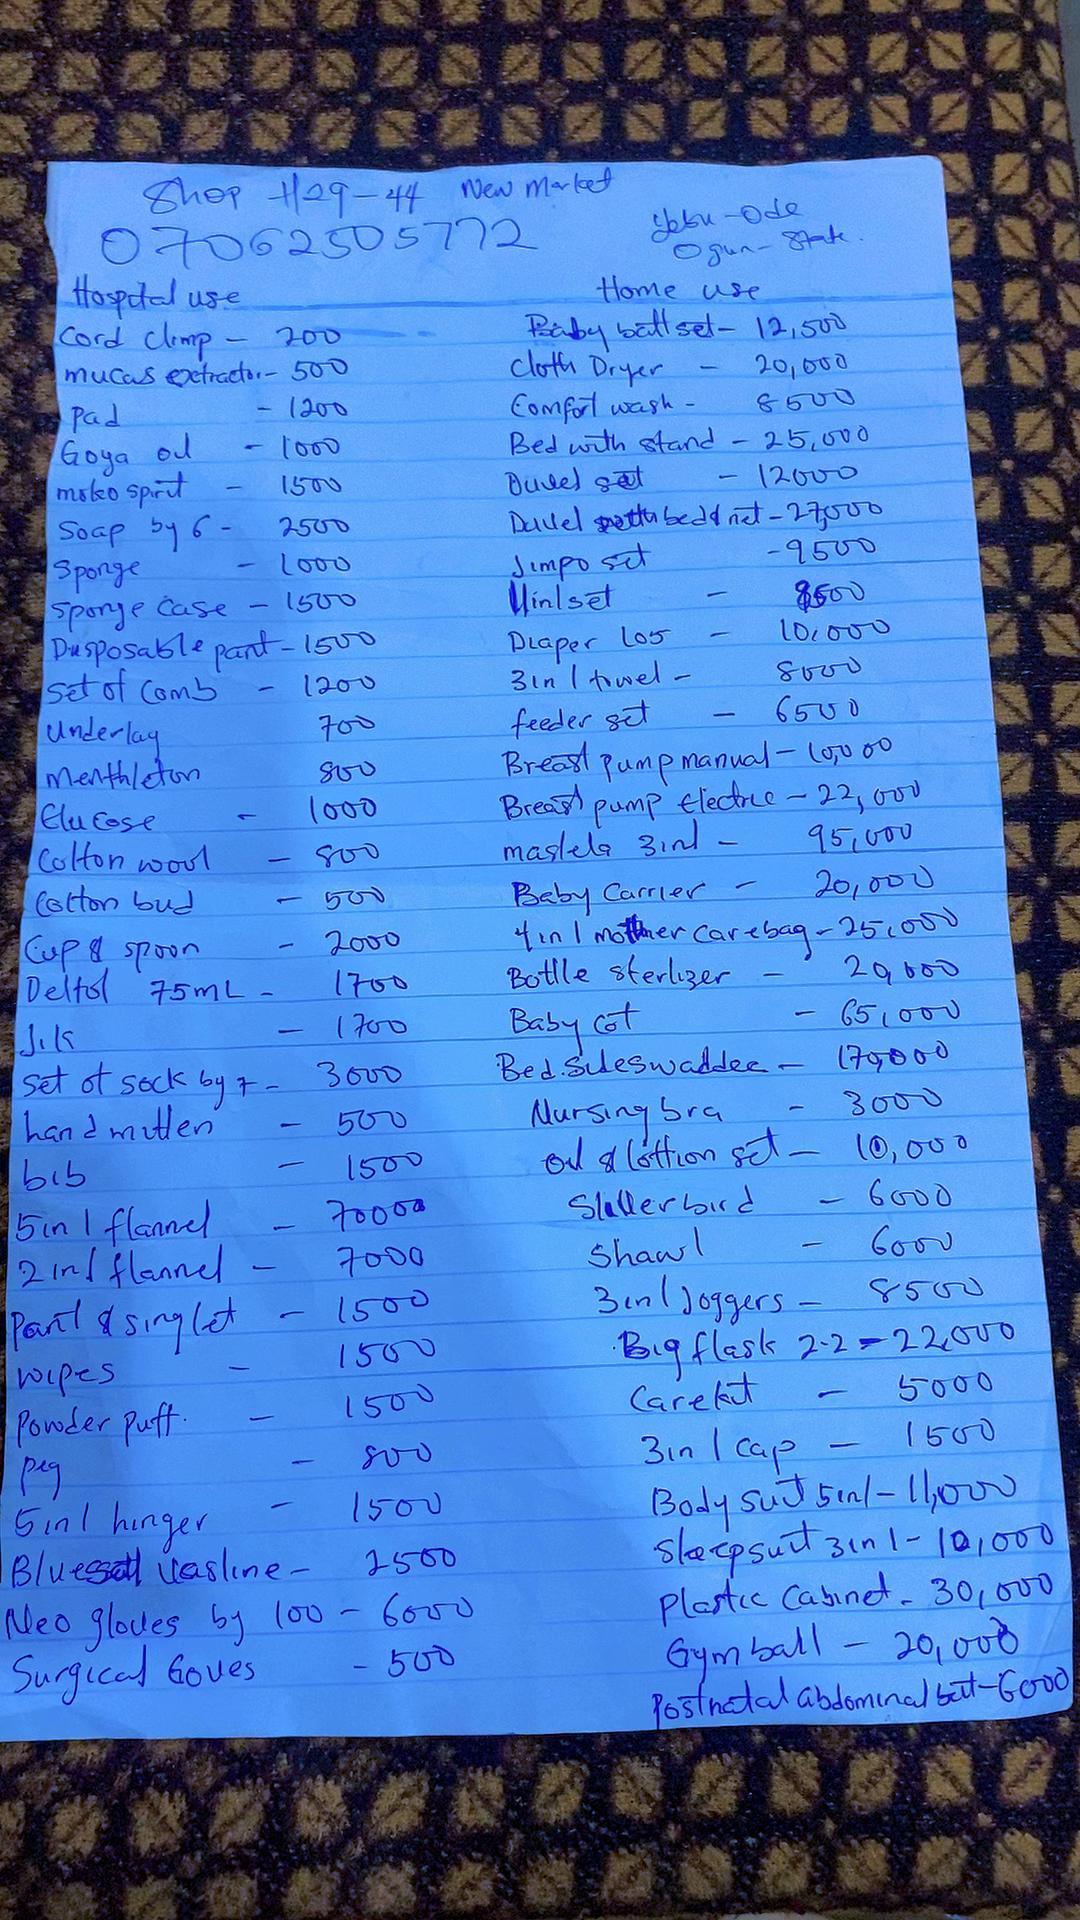 Shop H29-44 New Market
07062505772
Ijebu-Ode
Ogun-State.
Hospital use
Cord clmp - 200
mucas extractor - 500
pad - 1200
Goya oil - 1000
moko spirit - 1500
Soap by 6 - 2500
Sponge - 1000
Sponge Case - 1500
Dusposable pant - 1500
Set of Comb - 1200
Underlay 700
menthleton 800
Glucose - 1000
Cotton wool - 800
Cotton bud - 500
Cup & spoon - 2000
Dettol 75mL - 1700
Jik - 1700
Set of sock by 7 - 3000
hand mitten - 500
bib - 1500
5in1 flannel - 70000
2in1 flannel - 7000
Pant & singlet - 1500
wipes - 1500
Powder puff. - 1500
peg - 800
5in1 hinger - 1500
Blueseal Vasline - 2500
Neo gloves by 100 - 6000
Surgical Goves - 500
Home use
Baby batt set - 12,500
Cloth Dryer - 20,000
Comfort wash - 8500
Bed with stand - 25,000
Duvel set - 12000
Duvel with bed & net - 27,000
Jimpo set - 9500
11in1set - 8500
Diaper los - 10,000
3in1 towel - 8000
feeder set - 6500
Breast pump manual - 10,000
Breast pump Electric - 22,000
maslela 3in1 - 95,000
Baby Carrier - 20,000
4in1 mother carebag - 25,000
Bottle sterlizer - 20,000
Baby cot - 65,000
Bed.Sideswaddee - 170,000
Nursing bra - 3000
Oil & lottion set - 10,000
6000
Shawl - 6000
3in1 Joggers - 8500
Big flask 2.2 - 22,000
Carekit - 5000
3in1 cap - 1500
Body suit 5in1 - 11,000
Sleepsuit 3in1 - 10,000
plastic Cabinet - 30,000
Gymball - 20,000
Postnatal abdominal belt - 6000